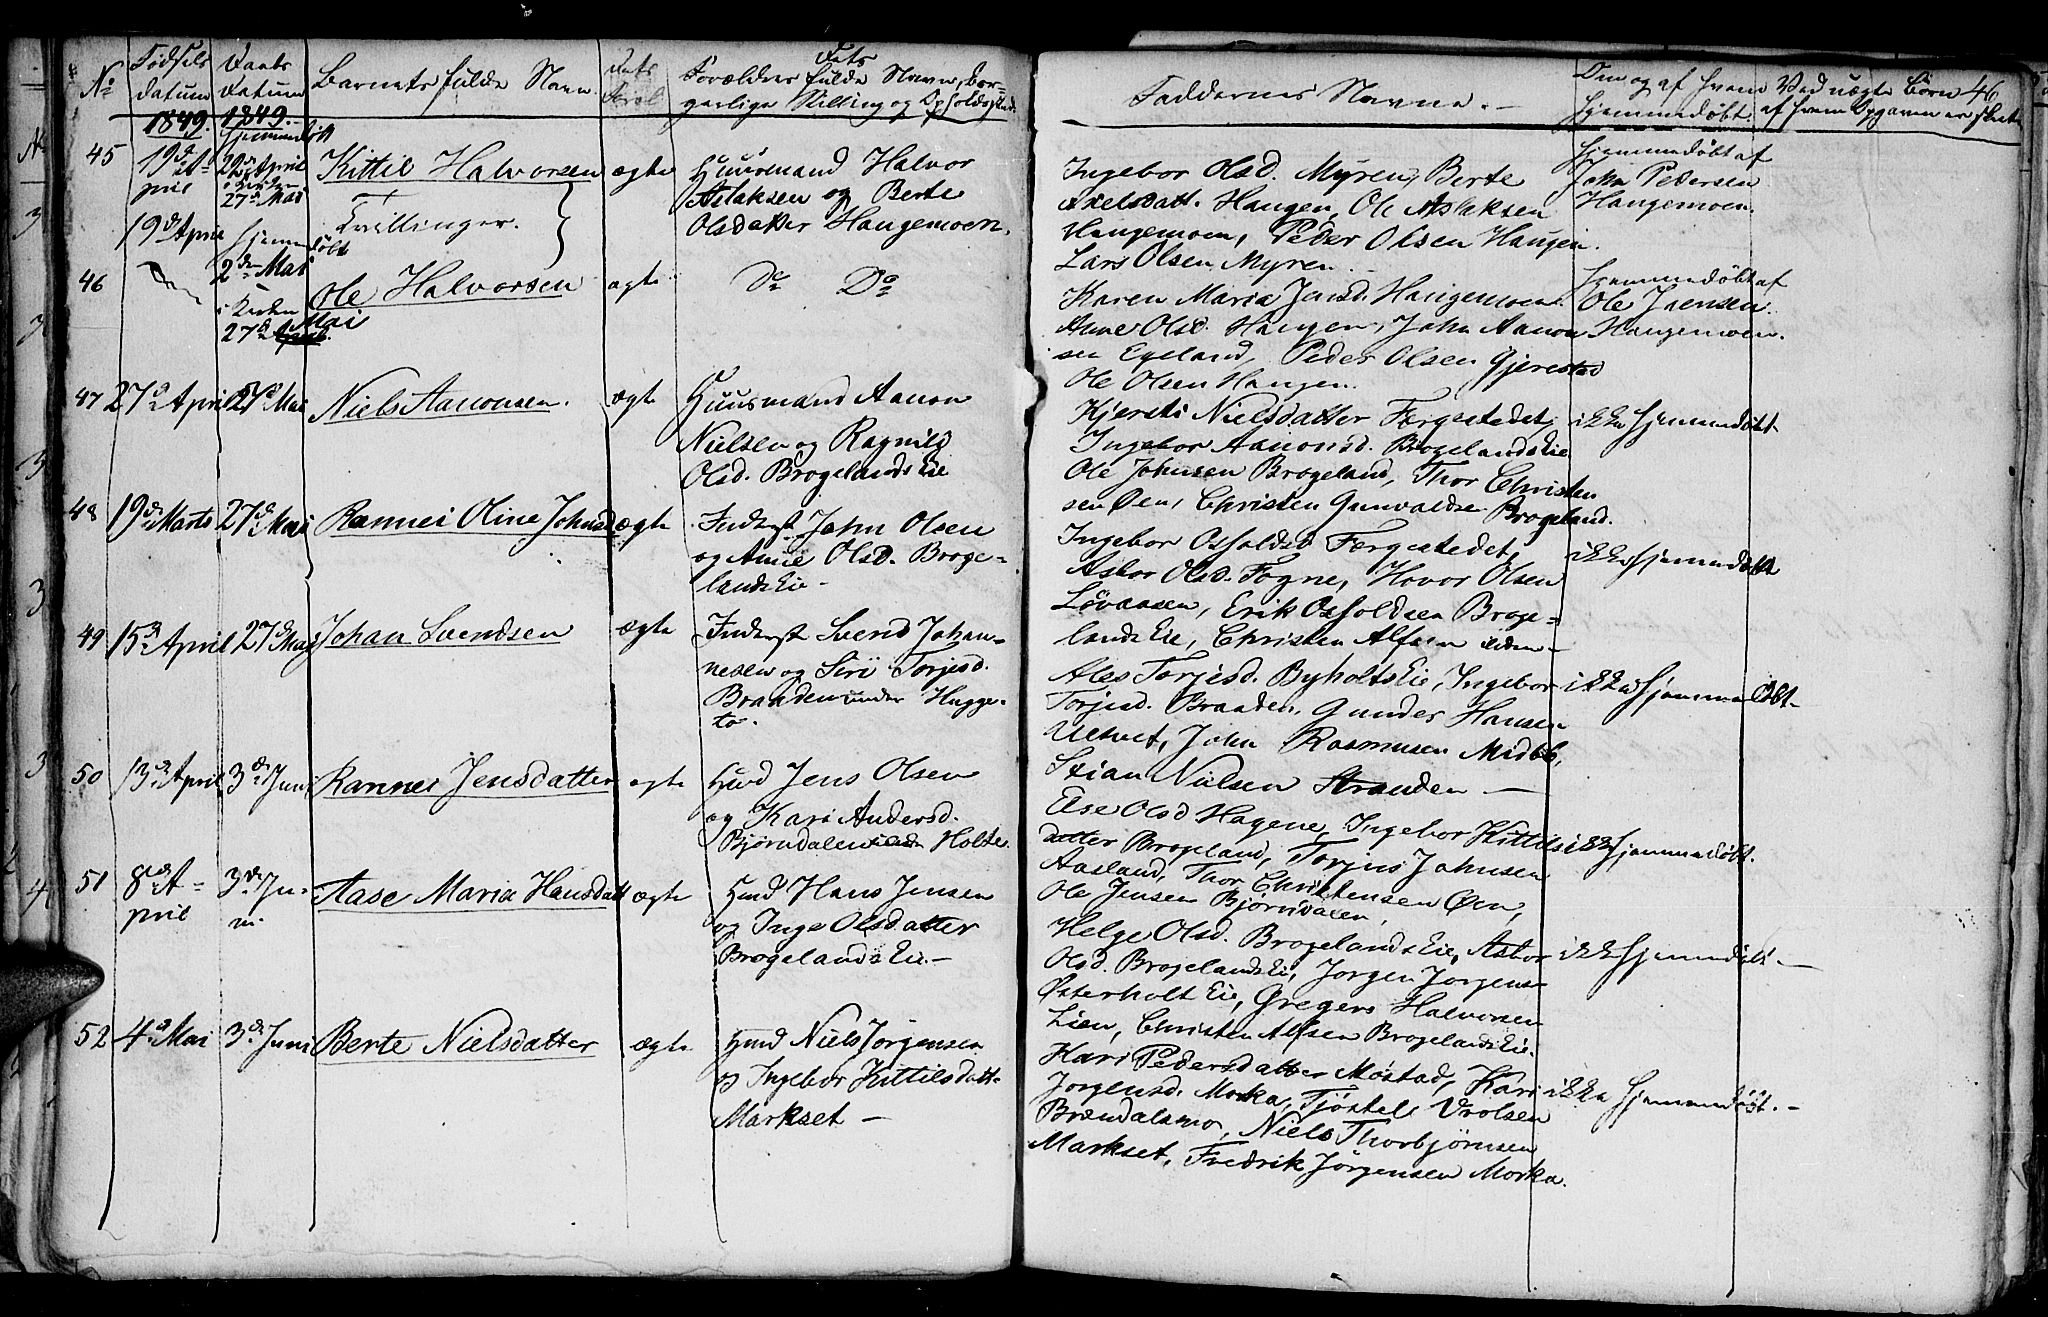 No Fødsels Daabs Barnets fulde Navn Forældres fulde Navne, bor-
datum Datum gerlige Stilling og Opholdssted
1849. 1849.
hjemmedøbt
45 19de A- 29de April Kittil Halvorsen ægte Huusmand Halvor
pril i Kirken Aslaksen og Berte
27de Mai Olsdatter Haugemoen.
Tvillinger.
19de April hjemmedøbt
2den Mai
46 Ole Halvorsen ægte Do Do
i Kirken
27de Mai
47 27de April 27de Mai Niels Aanonsen. ægte Huusmand Aanon
Nielsen og Ragnild
Olsd. Brogelands Eie
48 19de Marts 27de Mai Rannei Oline Johnsd ægte Inderst John Olsen
og Anne Olsd. Broge-
lands Eie -
49 15de April 27de Mai Johan Svendsen ægte Inderst Svend Johan-
nesen og Siri Torjesd.
Braaden under Hugge-
to.
50 13de April 3de Juni Rannei Jensdatter ægte Huusd Jens Olsen
og Kari Andersd.
Bjørndalen Holte.
51 8de A- 3de Ju- Aase Maria Hansdatt ægte Huusd Hans Jensen
pril ni og Inge Olsdatter
Brogelands Eie.-
52 4de Mai 3de Juni Berte Nielsdatter ægte Huusd Niels Jørgensen
og Ingebor Kittilsdatt.
Markset -
Faddernes Navne. - Om og af hvem Ved uægte Børn 46
hjemmedøbt. af hvem Opgaven er skeet
Ingebor Olsd. Myren, Berte hjemmedøbt af
Axelsdatt. Haugen, Ole Aslaksen John Pedersen
Haugemoen, Peder Olsen Haugen. Haugemoen.
Lars Olsen Myren.
Karen Maria Jensd. Haugemoen. hjemmedøbt af
Anne Olsd. Haugen, John Aanon Ole Jensen
sen Egeland, Peder Olsen Gjerestad Haugemoen.
Ole Olsen Haugen.
Kjersti Nielsdatter Færgestedet, ikke hjemmedøbt
Ingebor Aanonsd. Brogelands Eie
Ole Johnsen Brogeland, Thor Christen
sen Øen, Christen Gunvaldsen Brogeland.
Ingebor Osfoldsd Færgestedet, ikke hjemmedøbt
Asbor Olsd. Fogne, Hovor Olsen
Løvaasen, Erik Osfoldsen Broge-
lands Eie, Christen Alfsen
Ales Torjesd. Byholts Eie, Ingebor ikke hjemmedøbt-
Torjesd. Braaden, Gunder Hansen
Ulevet, John Rasmusen Midtb,
Stian Nielsen Stranden -
Else Olsd Hagene, Ingebor Kittils ikke hjemmedøbt.
datter Brogeland, Torjus Johnsen
Aasland, Thor Christensen Øen,
Ole Jensen Bjørndalen,
Helge Olsd. Brogelands Eie, Asbor ikke hjemmedøbt. -
Olsd. Brogelands Ei, Jorgen Jorgens-
Østerholt Eie, Gregers Halvorsen
Lien, Christen Alfsen Brogelands Eie.
Kari Pedersdatter Møstad, Kari ikke hjemmedøbt. -
Jorgensd. Morka, Tjøstel Vrolsen
Brændalsmo, Niels Thorbjørnsen
Markset, Fredrik Jørgensen Morka.